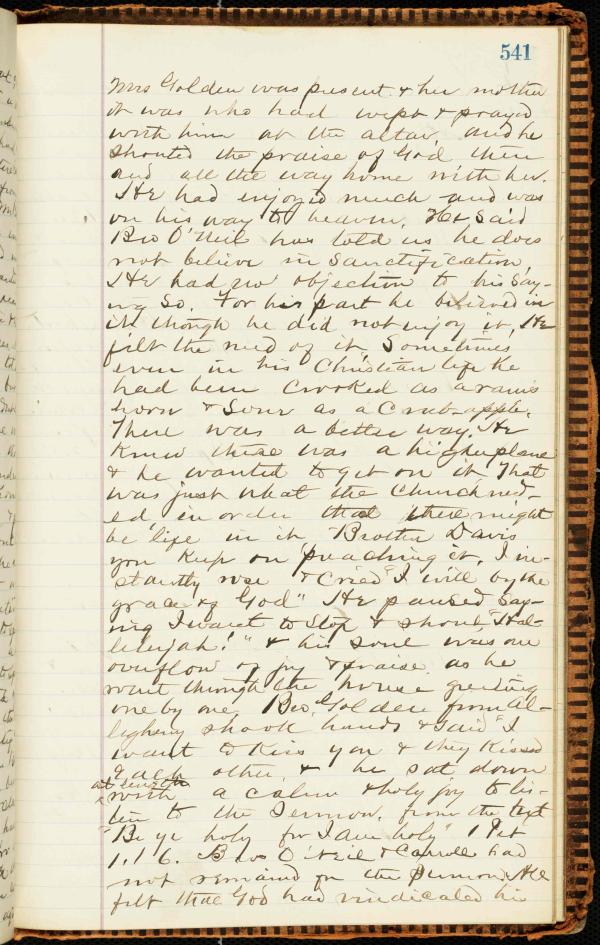 541
Mrs Golden was present & her mother
it was who had wept & prayed
with him at the altar, and he
shouted the praise of God then
and all the way home with her.
He had enjoyed much and was
on his way to heaven. He said
Bro O'Neil has told us he does
not believe in Sanctification,
He had no objection to his say-
ing so. For his part he believed in
it though he did not enjoy it, He
felt the need of it. Sometimes
even in his Christian life he
had been crooked as a rams
horn & Sour as a Crab-apple.
There was a better way. He
knew there was a higher plane
& he wanted to get on it. That
was just what the Church need-
ed, in order that there might
be life in it. "Brother Davis
you keep on preaching it. I in-
stantly rose & Cried "I will by the
grace of God" He paused say-
ing I want to Stop & shout "Hal-
lelujah!" & his soul was one
overflow of joy & praise as he
went through the house greeting
one by one. Bro. Golden from Al-
legheny shook hands & said "I
want to kiss you & they kissed
each other, & he sat down
at length
with a calm & holy joy to lis-
ten to the Sermon, from the text
"Be ye holy for I am holy" 1 Pet
1.16. Bros O'Neil & had
not remained for the Sermon. All
felt that God had vindicated his